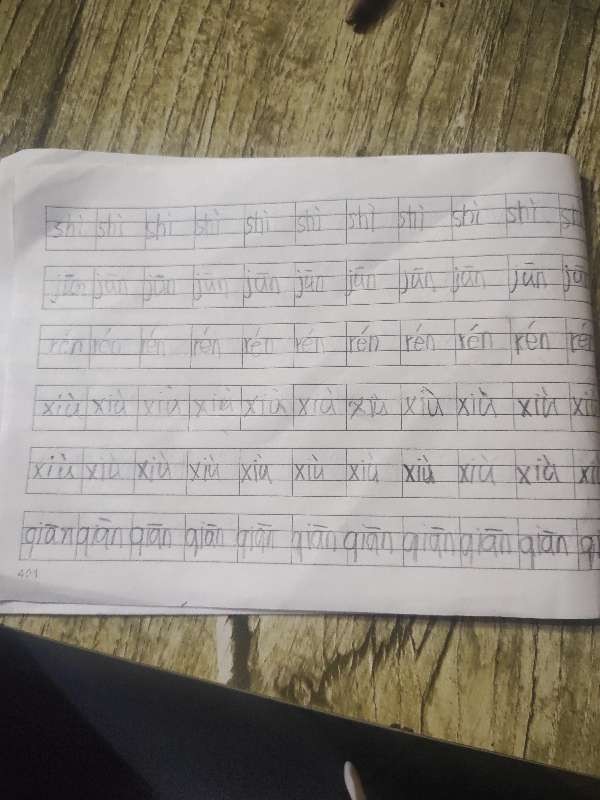 shì shì shì shì shì shì shì shì shì shì
jūn jūn jūn jūn jūn jūn jūn jūn jūn jūn
rén rén rén rén rén rén rén rén rén rén rén
xiù xià xià xià xià xià xià xiù xià xià
xiù xiù xiù xiù xiù xiù xiù xiù xiù xià
qiān qiān qiān qiān qiān qiān qiān qiān qiān qiān
401